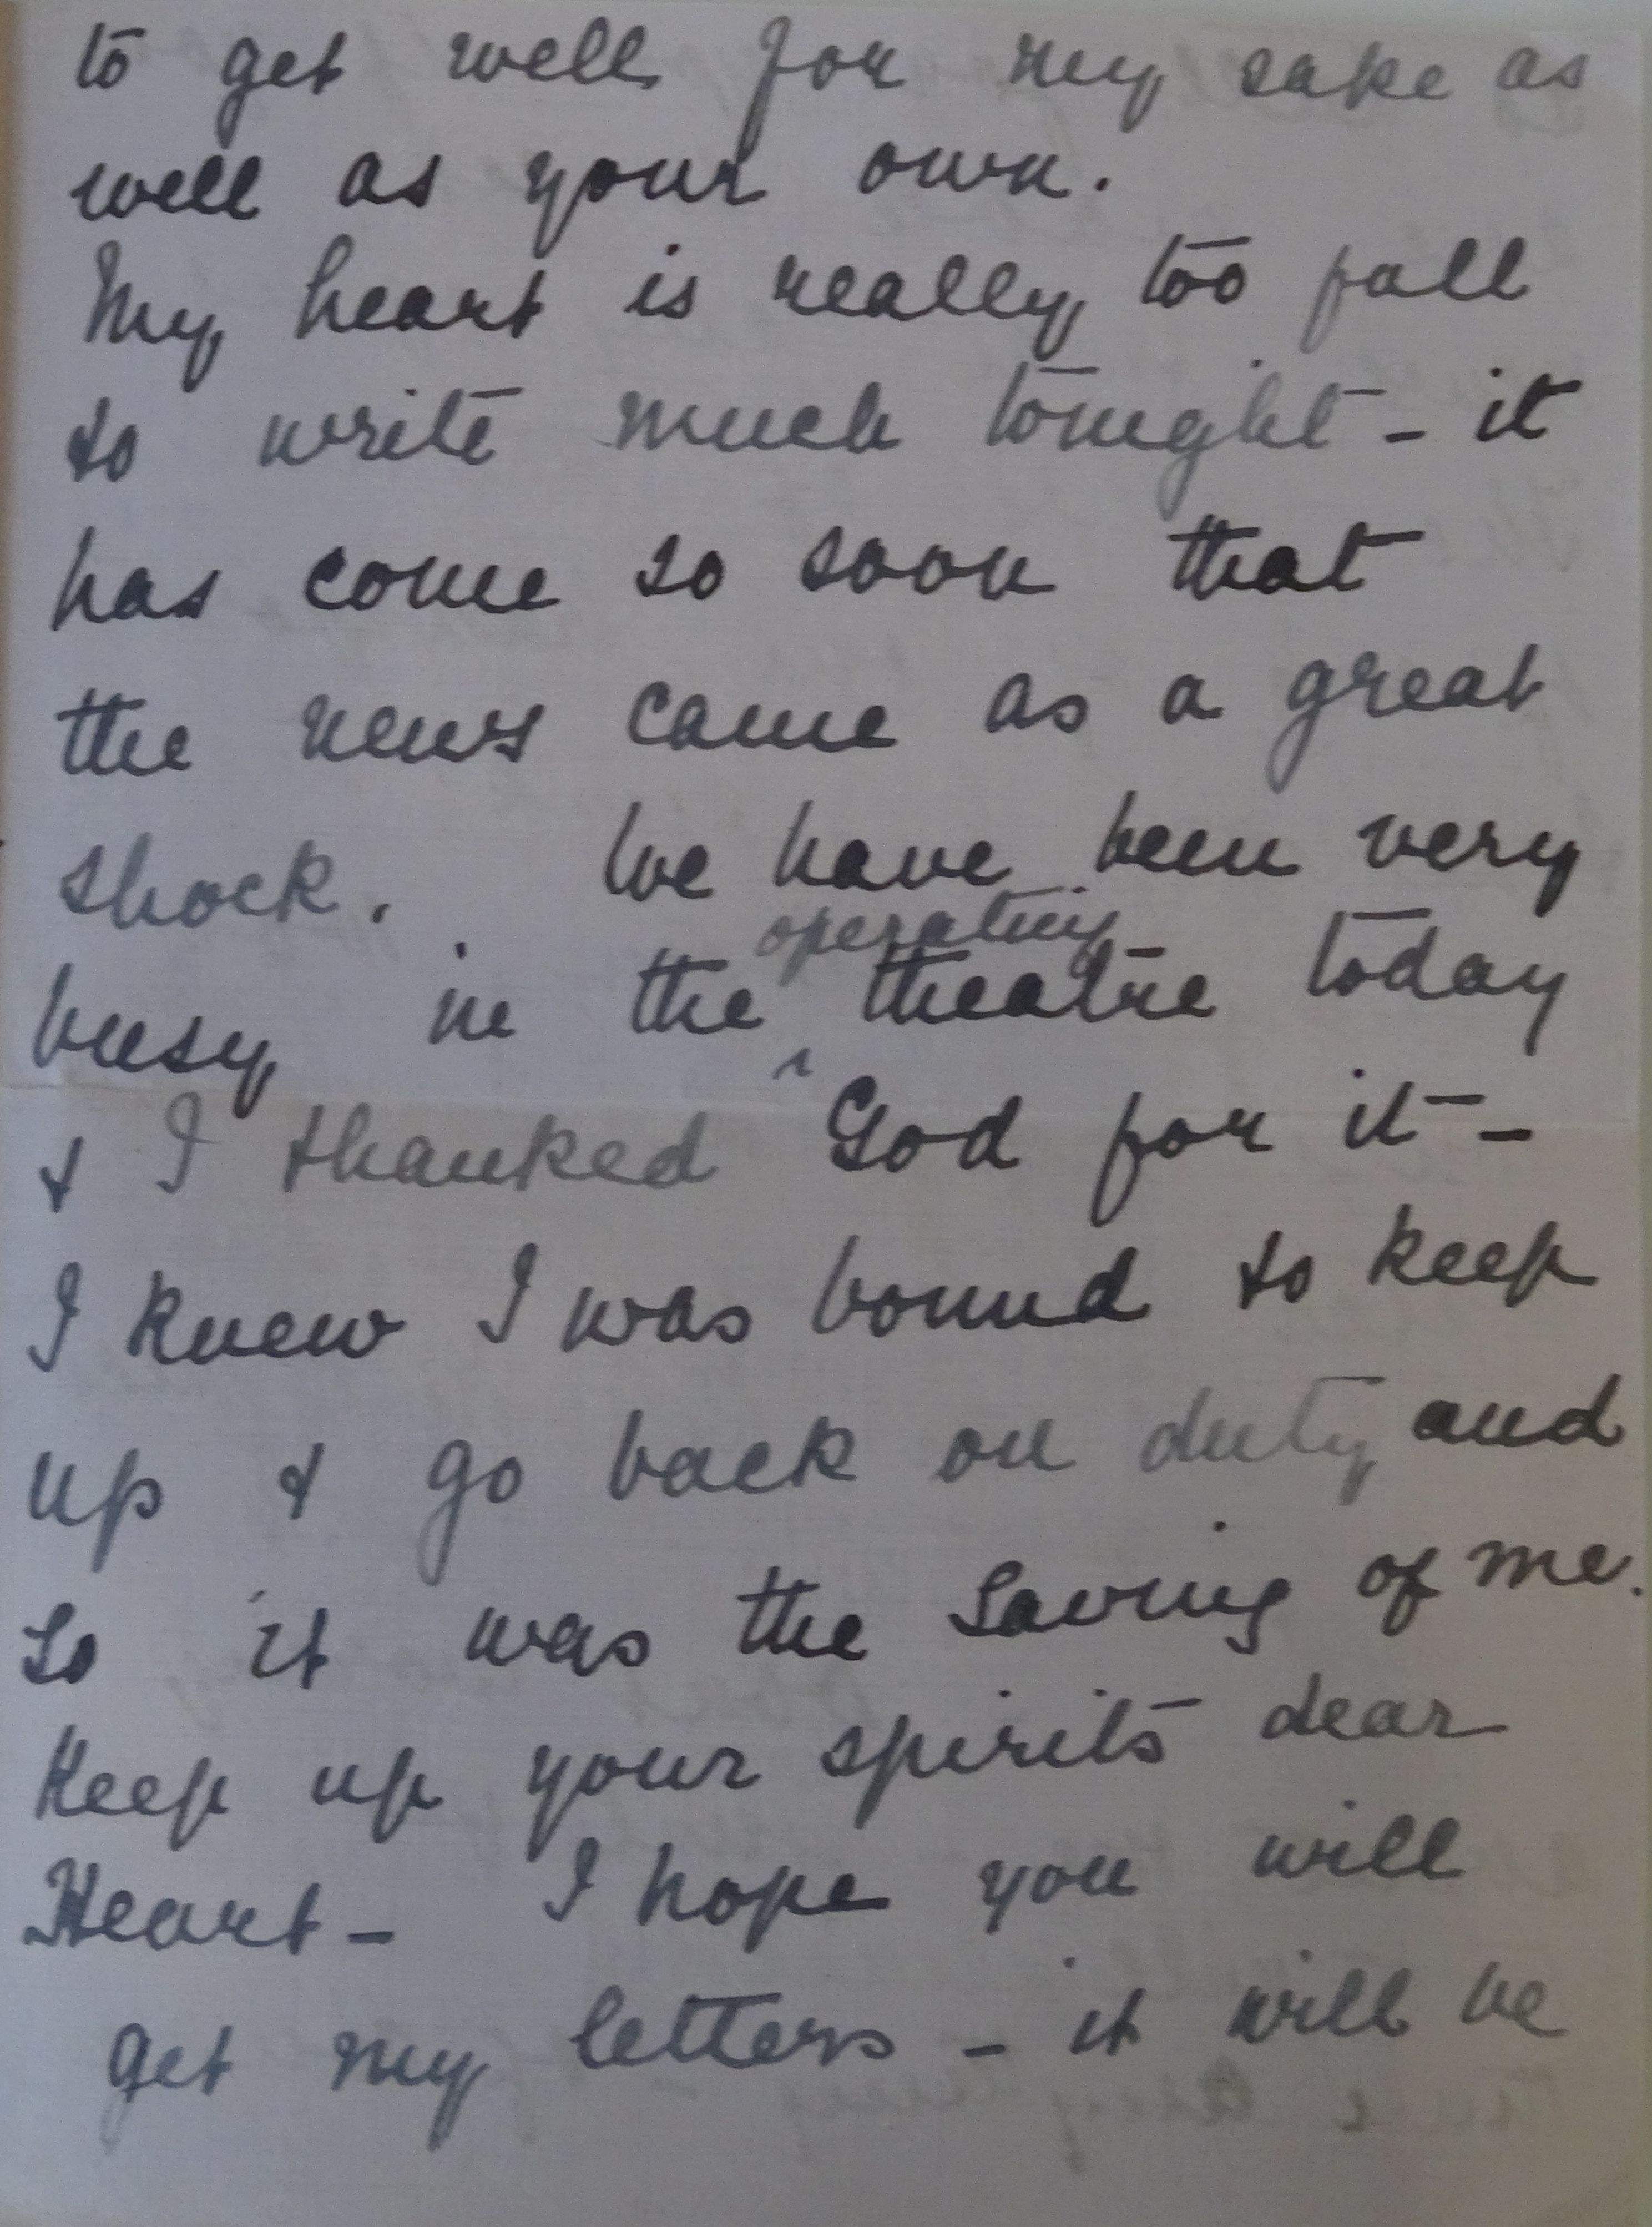 to get well for my sake as
well as your own.
My heart is really too full
to write much tonight - it
has come so soon that
the news came as a great
shock. We have been very
operating
busy in the ^ theatre today
& I thanked God for it -
I knew I was bound to keep
up & go back on duty and
so it was the saving of me.
Keep up your spirits dear
Heart - I hope you will
get my letters - it will be